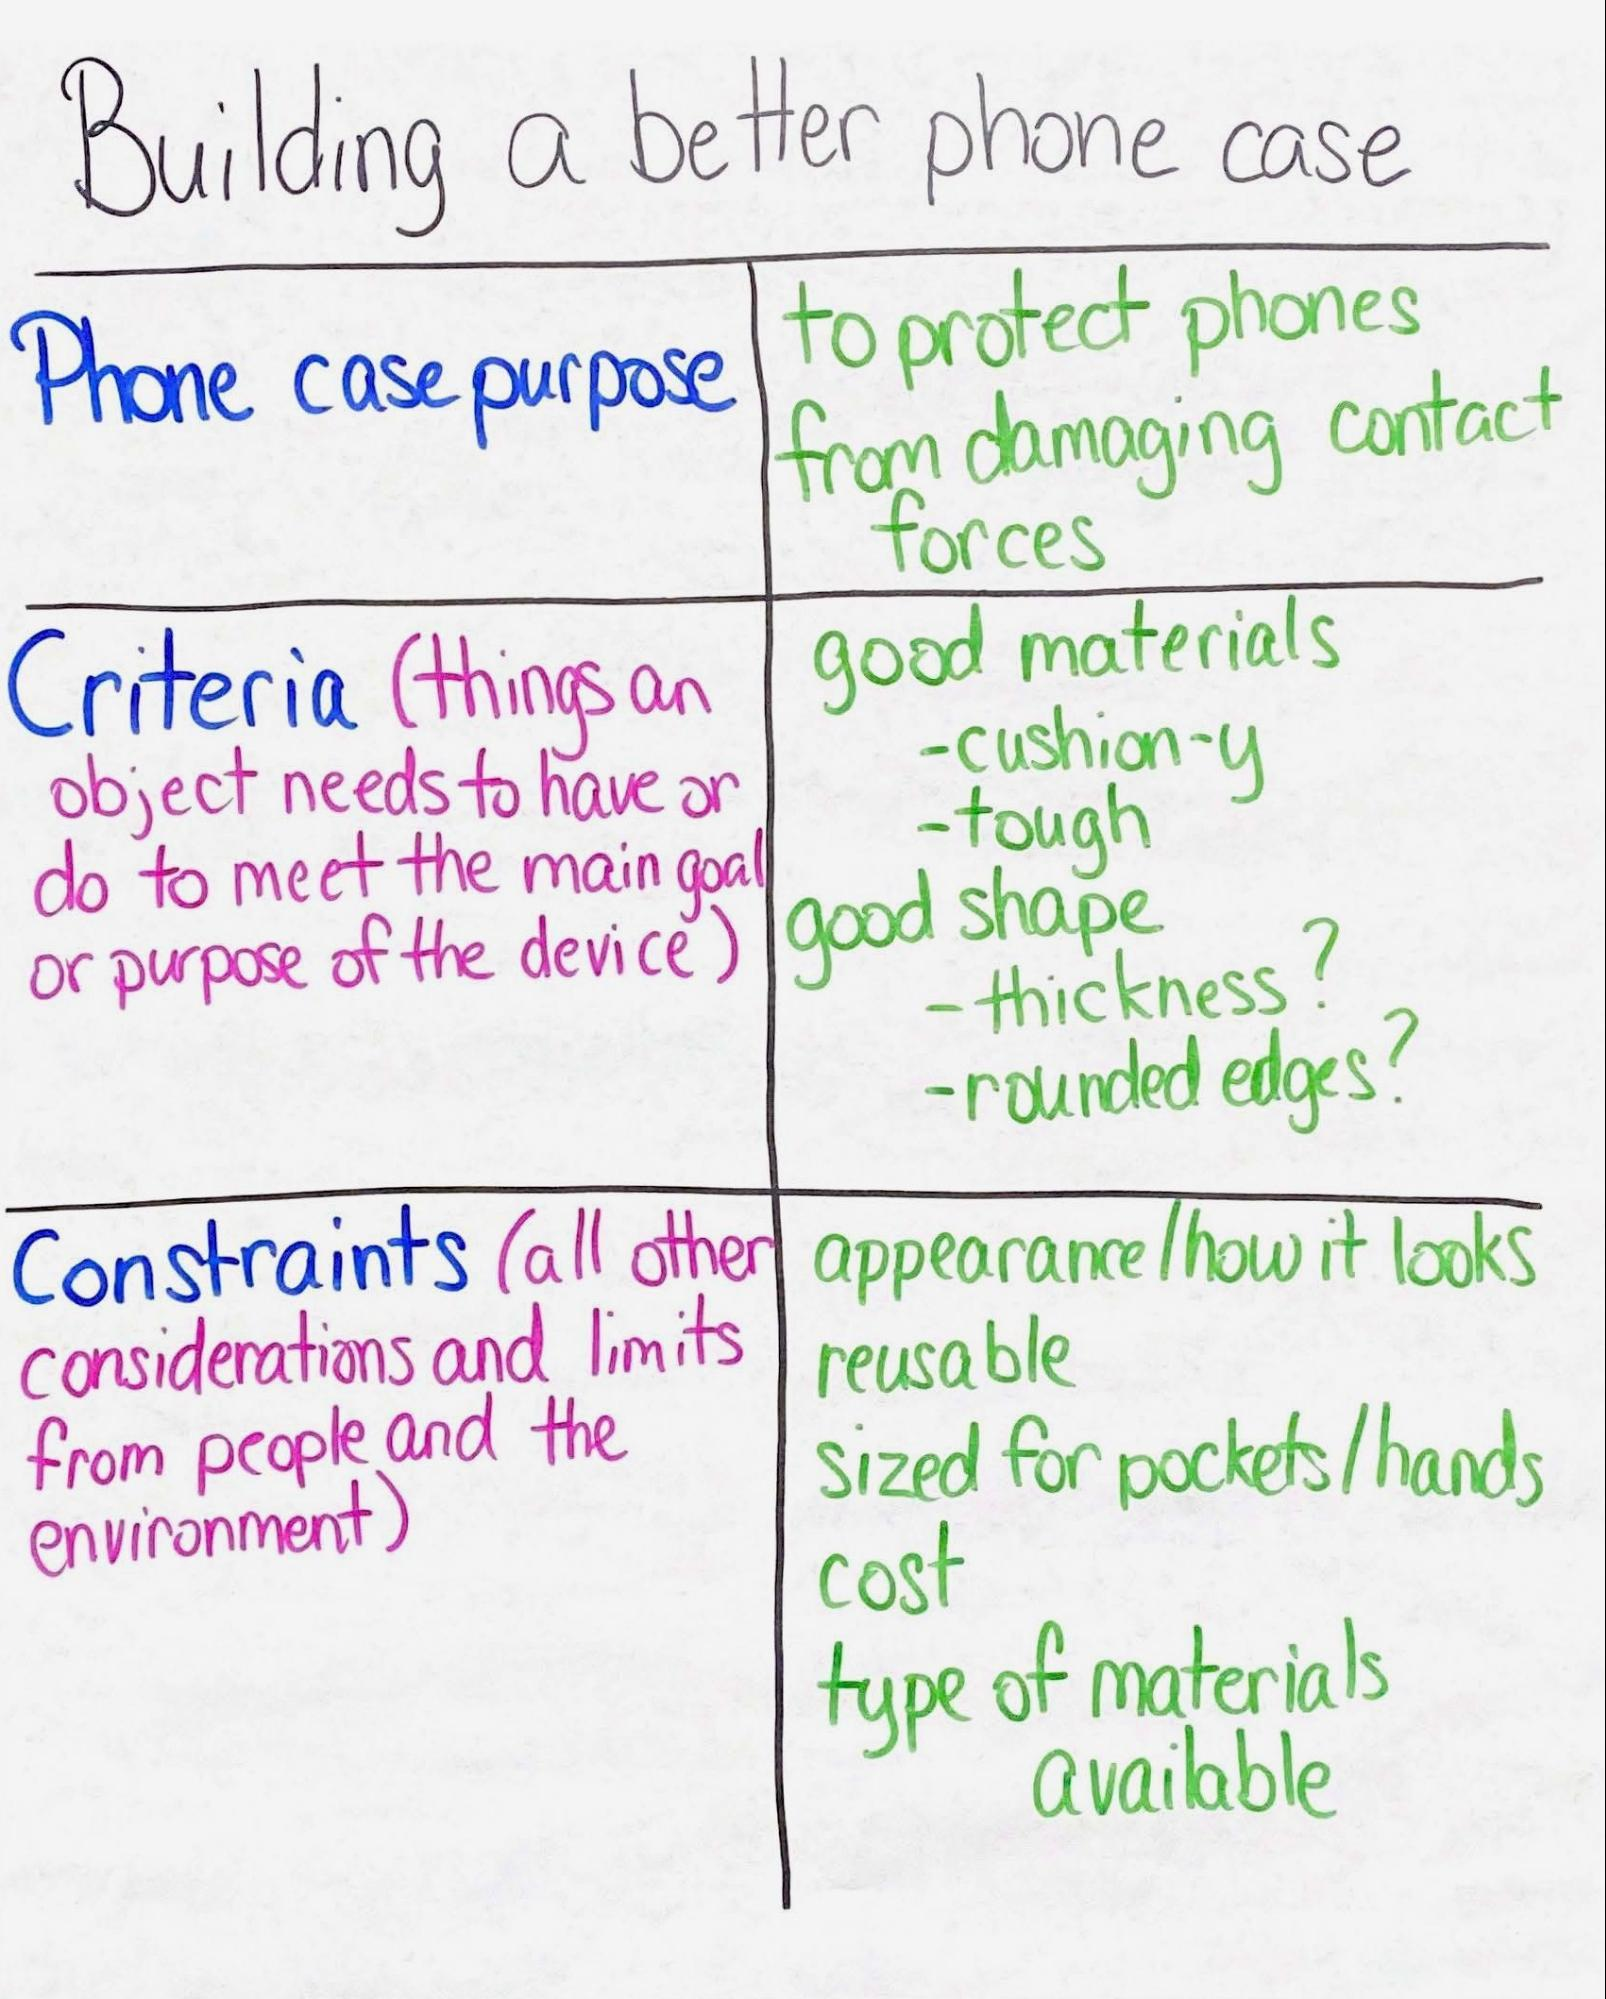 Building a better phone case
Phone case purpose
to protect phones
from damaging contact
forces
Criteria (things an
object needs to have or
do to meet the main goal
or purpose of the device)
good materials
-cushion-y
-tough
good shape
-thickness?
-rounded edges?
Constraints (all other
considerations and limits
from people and the
environment)
appearance/how it looks
reusable
sized for pockets/hands
cost
type of materials
available